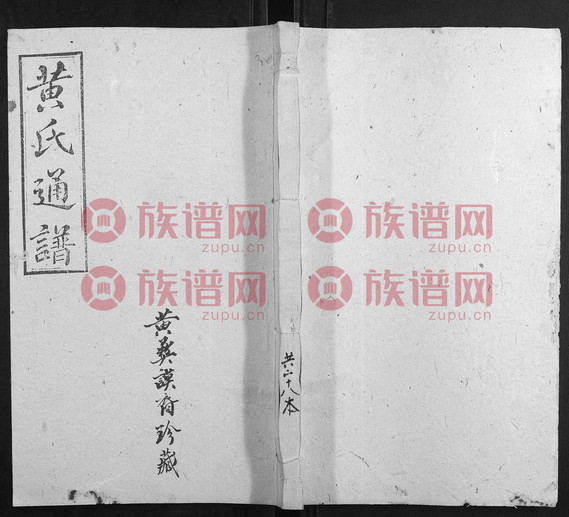 黄氏通譜
黄彝謨府珍藏
共二十八本
族谱网
zupu.cn
族谱网
zupu.cn
族谱网
zupu.cn
族谱网
zupu.cn